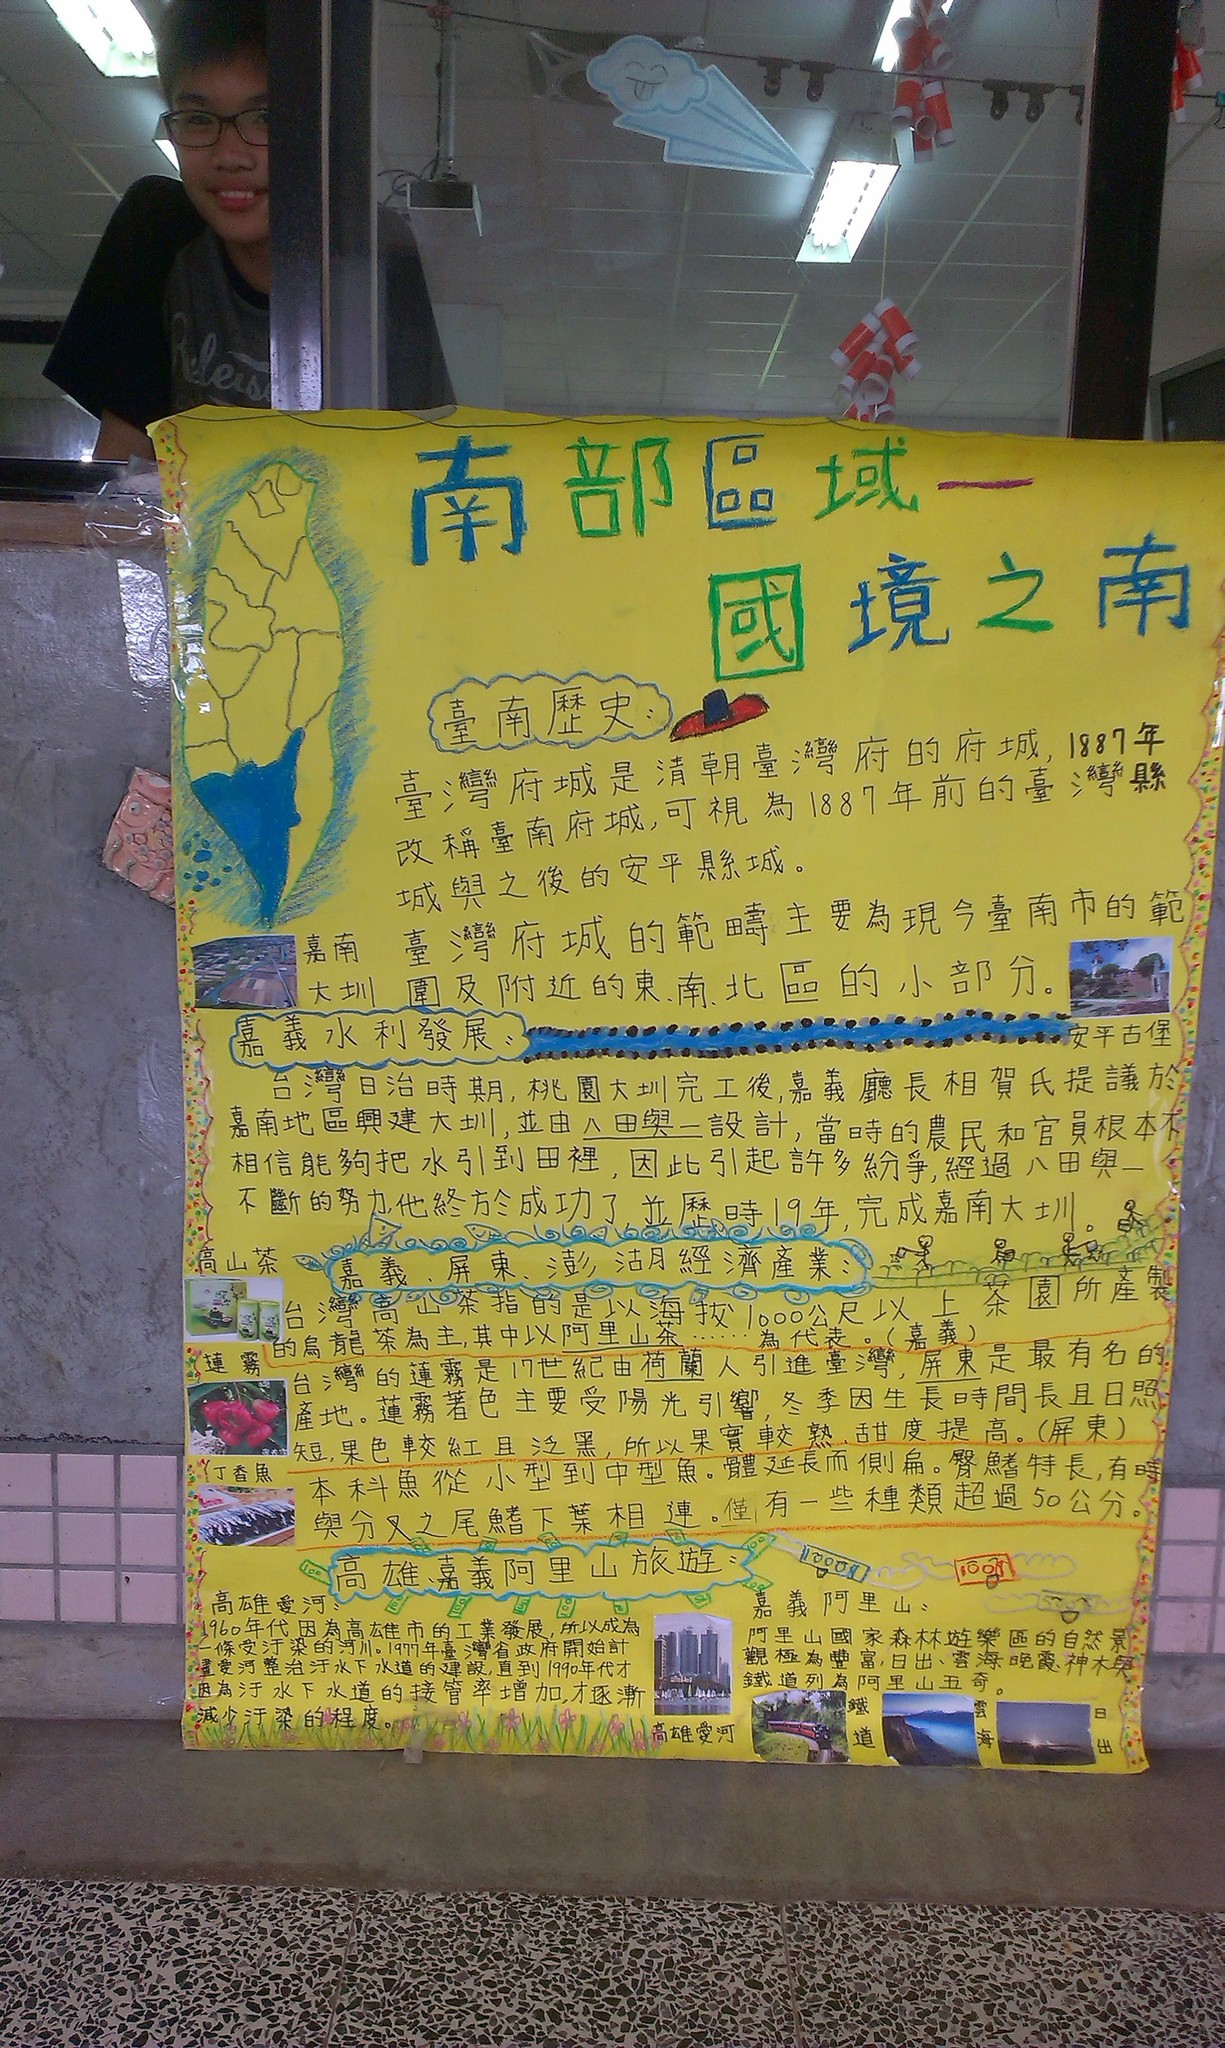 南部區域一
國境之南
臺南歷史:
臺灣府城是清朝臺灣府的府城,1887年
改稱臺南府城,可視為1887年前的臺灣縣
城與之後的安平縣城。
臺灣府城的範疇主要為現今臺南市的範
圍及附近的東、南、北區的小部分。
嘉南
大圳
安平古堡
嘉義水利發展:
台灣日治時期,桃園大圳完工後,嘉義廳長相賀氏提議於
嘉南地區興建大圳,並由八田與一設計,當時的農民和官員根本不
相信能夠把水引到田裡,因此引起許多紛爭,經過八田與一
不斷的努力,他終於成功了並歷時19年,完成嘉南大圳。
嘉義、屏東、澎湖經濟產業:
高山茶
台灣高山茶指的是以海拔1000公尺以上茶園所產製
的烏龍茶為主,其中以阿里山茶……為代表。(嘉義)
蓮霧
台灣的蓮霧是17世紀由荷蘭人引進臺灣,屏東是最有名的
產地。蓮霧著色主要受陽光引響,冬季因生長時間長且日照
短,果色較紅且泛黑,所以果實較熟、甜度提高。(屏東)
丁香魚
本科魚從小型到中型魚。體延長而側扁。臀鰭特長,有時
與分叉之尾鰭下葉相連。僅有一些種類超過50公分。
高雄、嘉義阿里山旅遊:
1000
100
高雄愛河:
1960年代因為高雄市的工業發展,所以成為
一條受汙染的河川。1977年臺灣省政府開始計
畫愛河整治汙水下水道的建設,直到1990年代才
因為汙水下水道的接管率增加,才逐漸
減少汙染的程度。
高雄愛河
嘉義阿里山:
阿里山國家森林遊樂區的自然景
觀極為豐富,日出、雲海、晚霞、神木與
鐵道列為阿里山五奇。
鐵道
雲海
日出